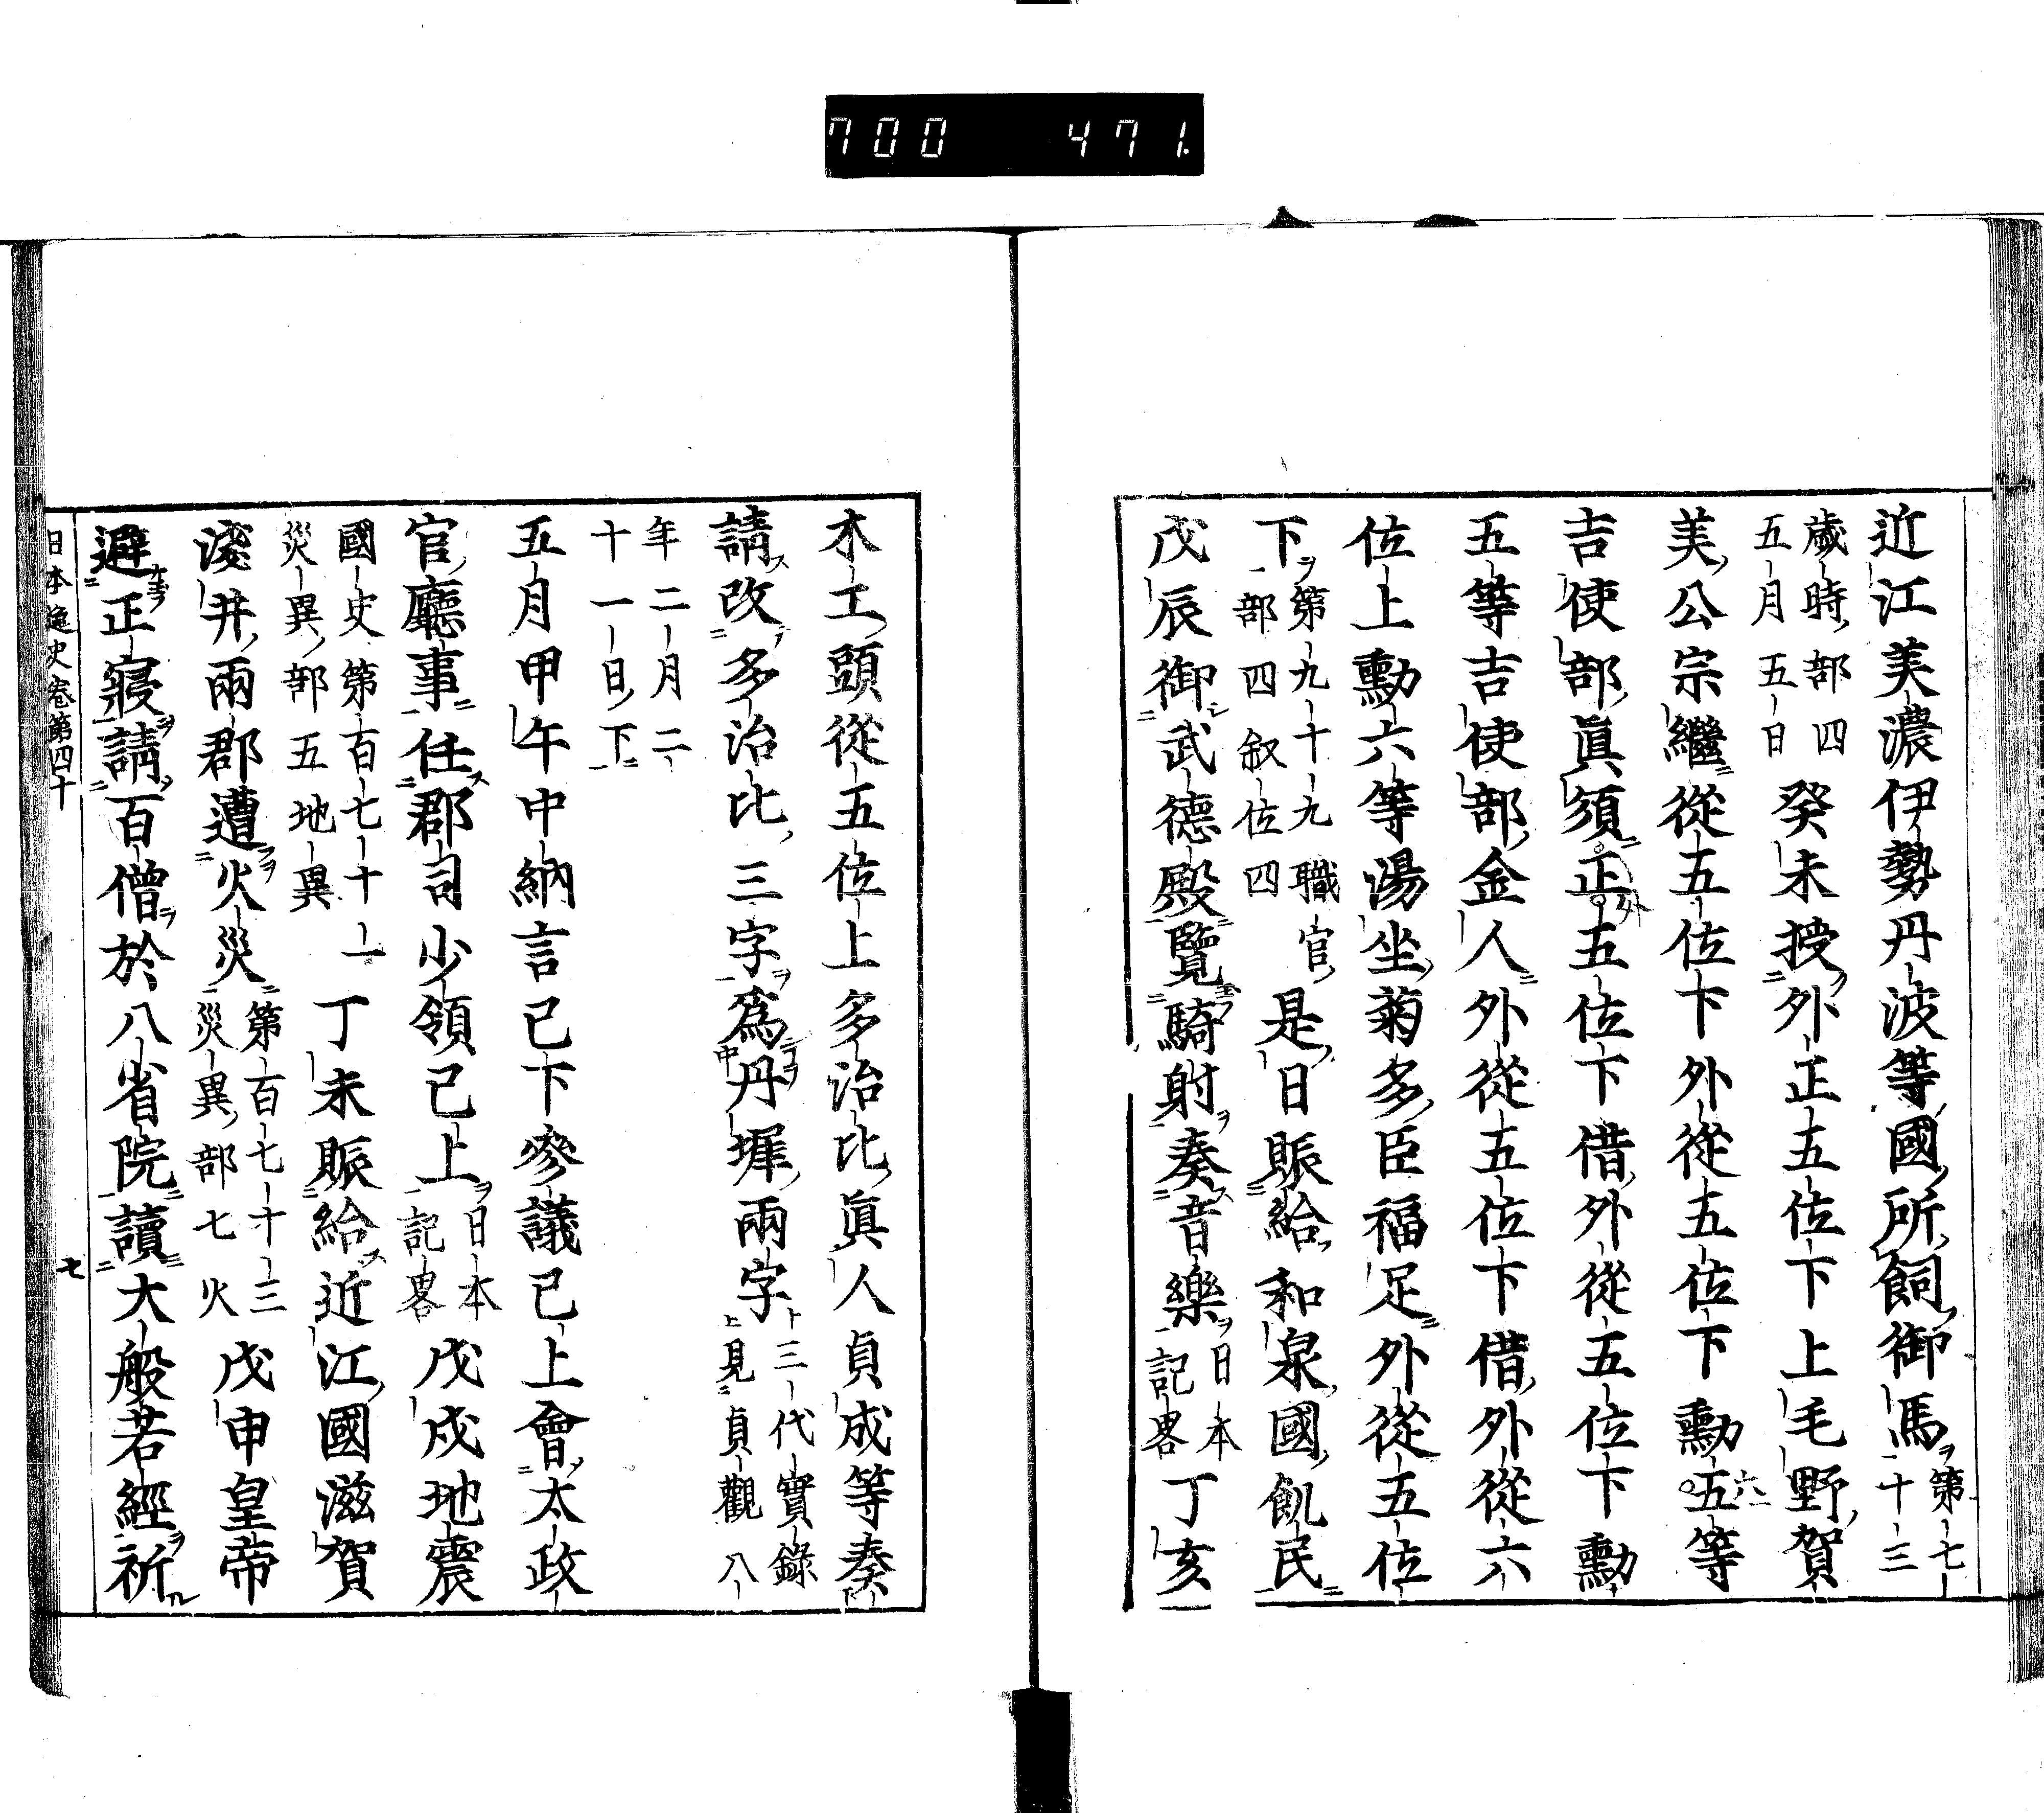 700 471.
近江美濃伊勢丹波等國所飼御馬第七十三
歲時部四五月五日癸未授外正五位下上毛野賀
美公宗繼從五位下外從五位下勳五等
吉使部眞須正五位下借外從五位下勳
五等吉使部金人外從五位下借外從六
位上勳六等湯坐菊多臣福足外從五位
下第九十九職官部四叙位四是日賑給和泉國飢民
戊辰御武德殿覽騎射奏音樂日本記畧丁亥
木工頭從五位上多治比眞人貞成等奏
請改多治比三字爲丹墀兩字三代實錄見貞觀八
年二月二十一日下
五月甲午中納言已下參議已上會太政
官廳事任郡司少領已上日本記畧戊戌地震
國史第百七十一災異部五地異丁未賑給近江國滋賀
淺井兩郡遭火災第百七十三災異部七火戊申皇帝
避正寢請百僧於八省院讀大般若經祈
日本逸史卷第四十 七